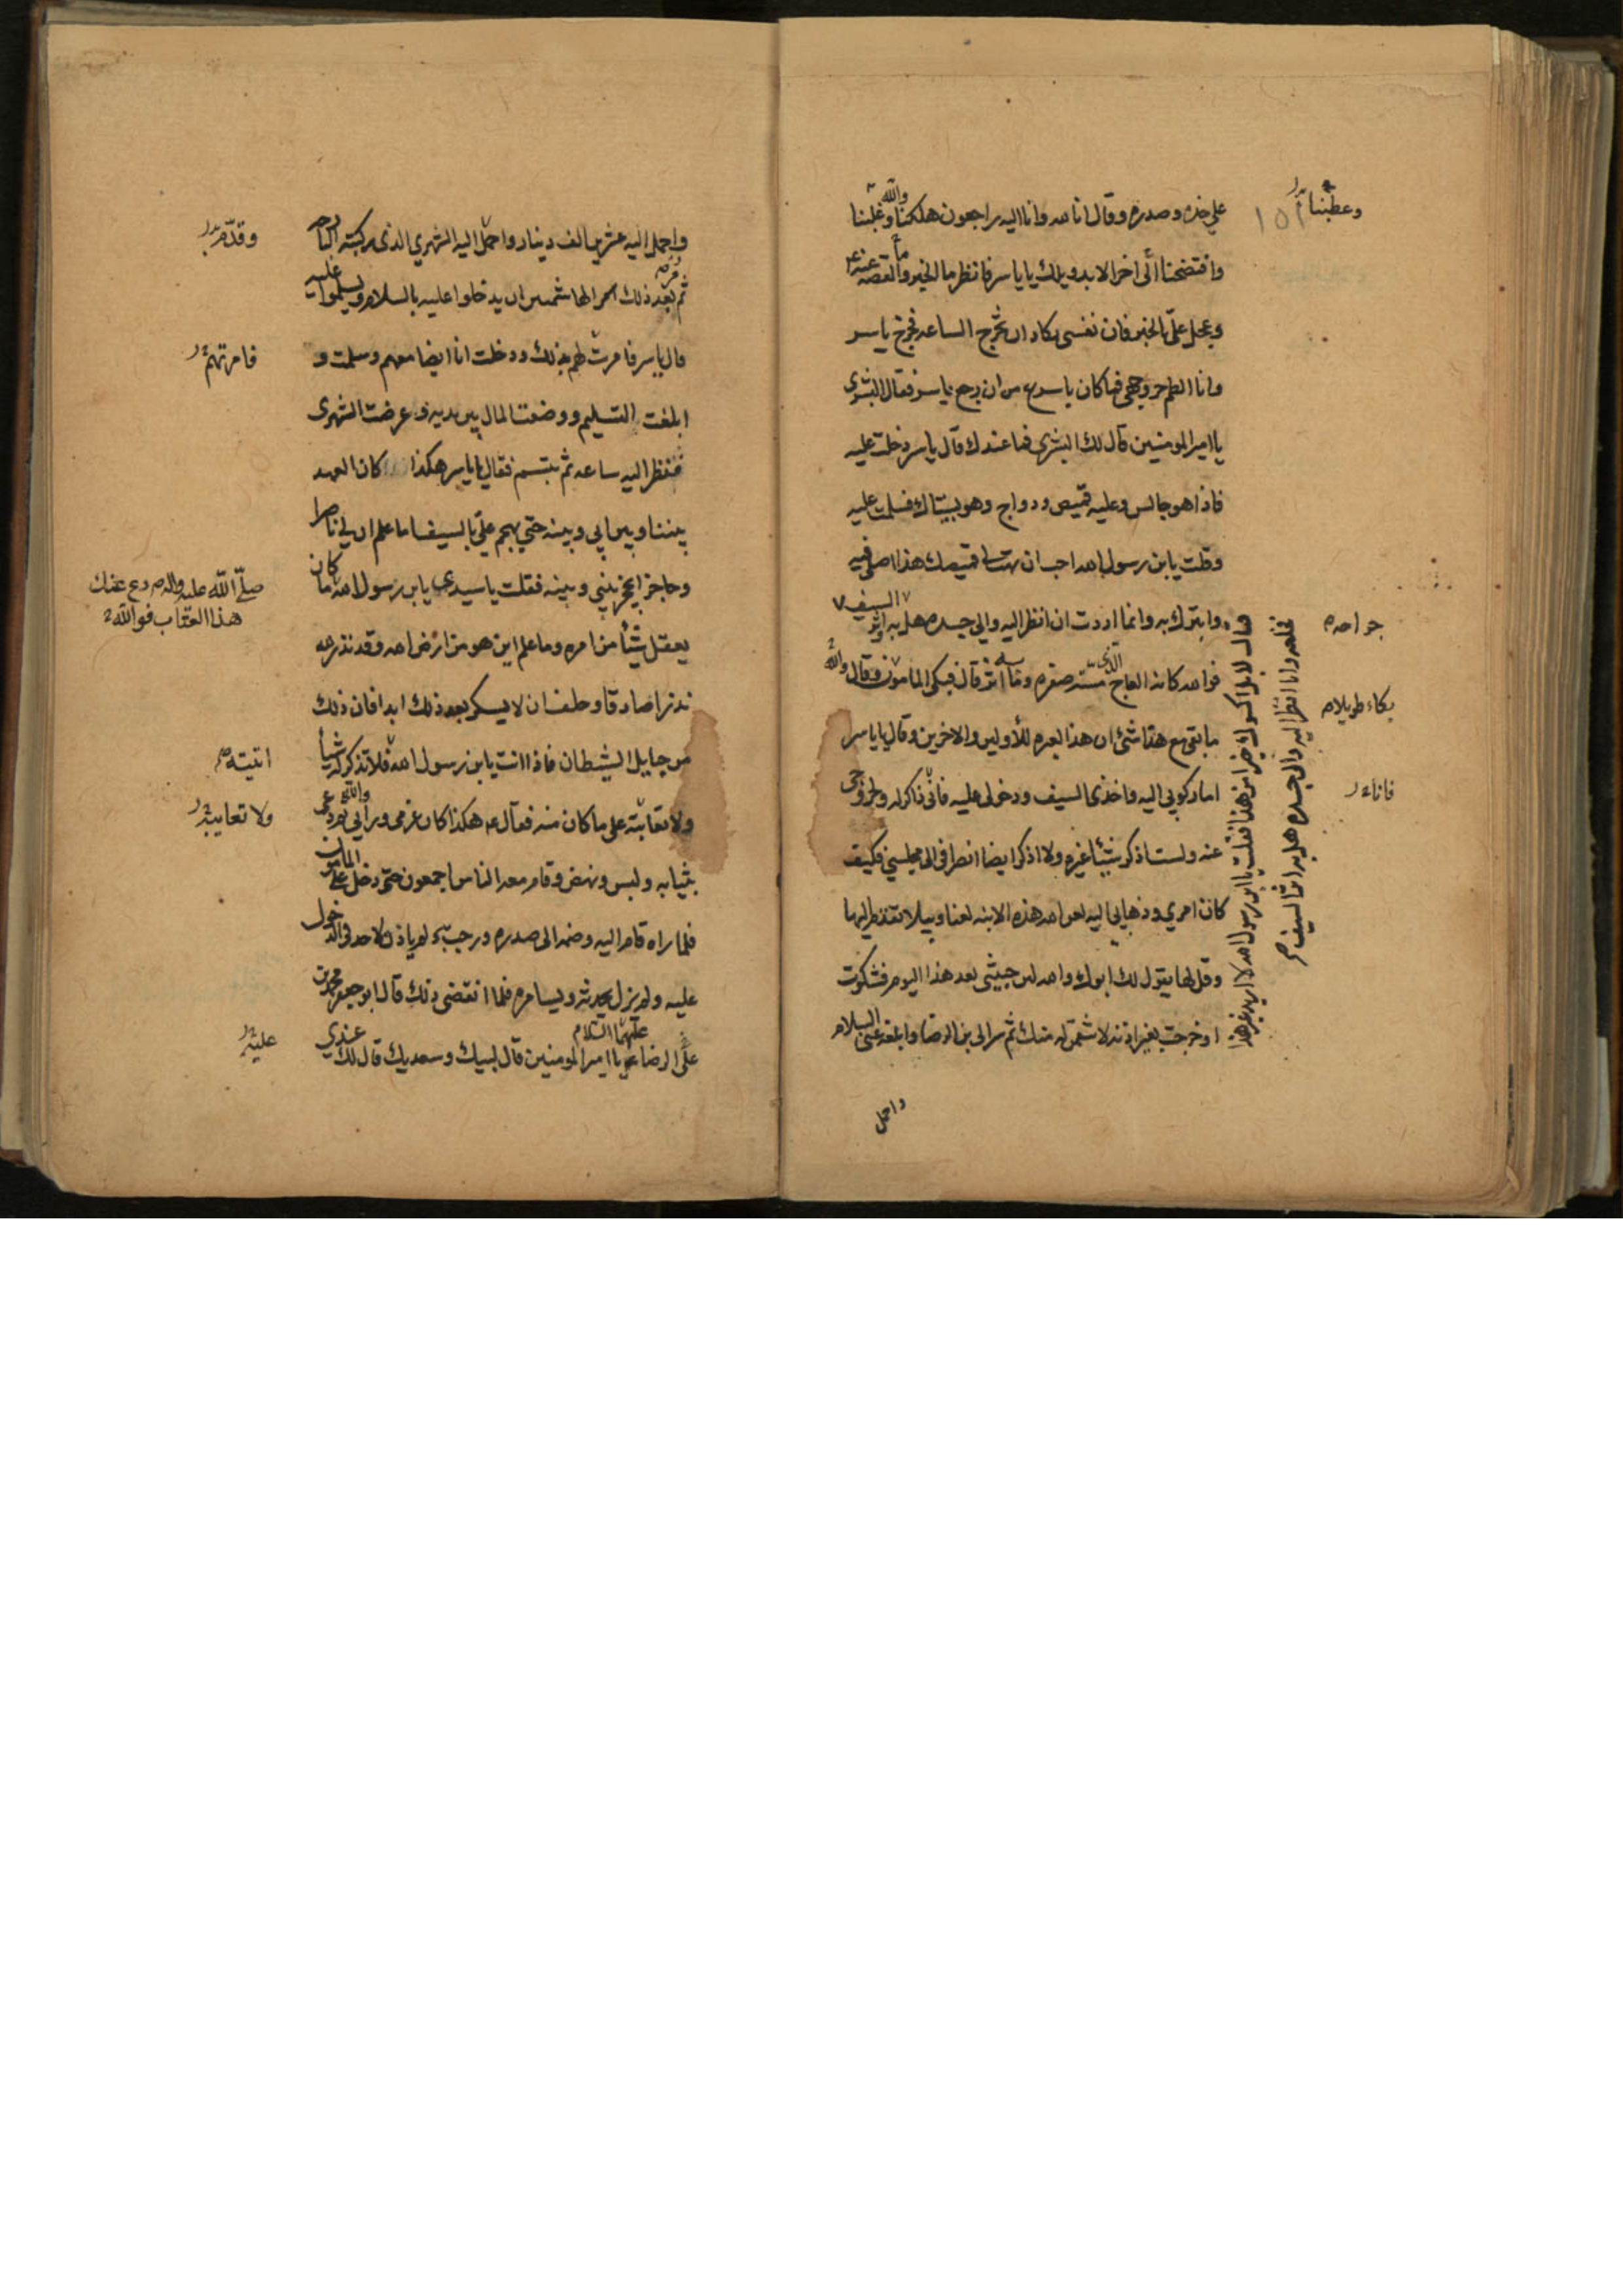 على خده وصدره وقال انا لله وانا اليه راجعون هلكنا والله وعطبنا
وافتضحنا الى اخر الابد ويلك يا ياسر فانظر ما الخبر والقصه عنه ع
وعجل على بالخبر فان نفسى تكاد ان تخرج الساعه فخرج ياسر
وانا الطم حر وجهى فما كان باسرع من ان رجع ياسر فقال البشرى
يا امير المومنين قال لك البشرى فما عندك قال ياسر دخلت عليه
فاذا هو جالس وعليه قميص ودواج وهو يستاك فسلمت عليه
وقلت يابن رسول الله احب ان تهب لى قميصك هذا اصلى فيه
واتبرك به وانما اردت ان انظر اليه والى جسده هل به اثر السيف
فوالله كانه العاج الذى مسته صفره وما به اثر قال فبكى المامون وقال والله
ما بقى مع هذا شئ ان هذا لعبره للأولين والاخرين وقال يا ياسر
اما ركوبى اليه واخذى السيف ودخولى عليه فانى ذاكر له وخروجى
عنه ولست اذكر شيئا غيره ولا اذكر ايضا انصرافى الى مجلسى فكيف
كان امرى وذهابى اليه لعن الله هذه الابنه لعنا وبيلا تقدم اليها
وقل لها يقول لك ابوك والله لئن جيتنى بعد هذا اليوم فشكوت
او خرجت بغير اذنه لانتقمن له منك ثم سر الى بن الرضا وابلغه عنى السلام
واحمل
وعطبنا
١٥٢
جراحه
بكاء طويلا
فاناء
فقال لا بل اكسوك خيرا من هذا فقلت يا ابن رسول الله لا اريد غير هذا
فخلعه وانا انظر اليه والى جسده هل به اثر السيف
واحمل اليه عشرين الف دينار واحمل اليه الشهري الذى ركبته البارحه
ثم مر بعد ذلك الهاشميين ان يدخلوا عليه بالسلام ويسلموا عليه
قال ياسر فامرت لهم بذلك ودخلت انا ايضا معهم وسلمت و
ابلغت التسليم ووضعت المال بين يديه وعرضت الشهرى
فنظر اليه ساعه ثم تبسم فقال يا ياسر هكذا كان العهد
بيننا وبين ابى وبينه حتى يهجم على بالسيف اما علم ان لى ناصرا
وحاجزا يحجز بينى وبينه فقلت ياسيدى يابن رسول الله ما كان
يعقل شيئا من امره وما علم اين هو من ارض الله وقد نذر لله
نذرا صادقا وحلف ان لا يسكر بعد ذلك ابدا فان ذلك
من حبايل الشيطان فاذا انت يابن رسول الله فلا تذكر له شيأ
ولا تعاتبه على ما كان منه فقال ع هكذا كان عزمى ورايى والله ثم دعى
بثيابه ولبس ونهض وقام معه الناس اجمعون حتى دخل على المامون
فلما راه قام اليه وضمه الى صدره ورحب به ولم ياذن لاحد فى الدخول
عليه ولم يزل يحدثه ويسامره فلما انقضى ذلك قال ابو جعفر محمد بن
على الرضا عليهما السلام يا امير المومنين قال لبيك وسعديك قال لك عندي
وقدم
فامرتهم
صلى الله عليه واله دع عنك
هذا العتاب فوالله
اتيته
ولا تعاتبه
عليه